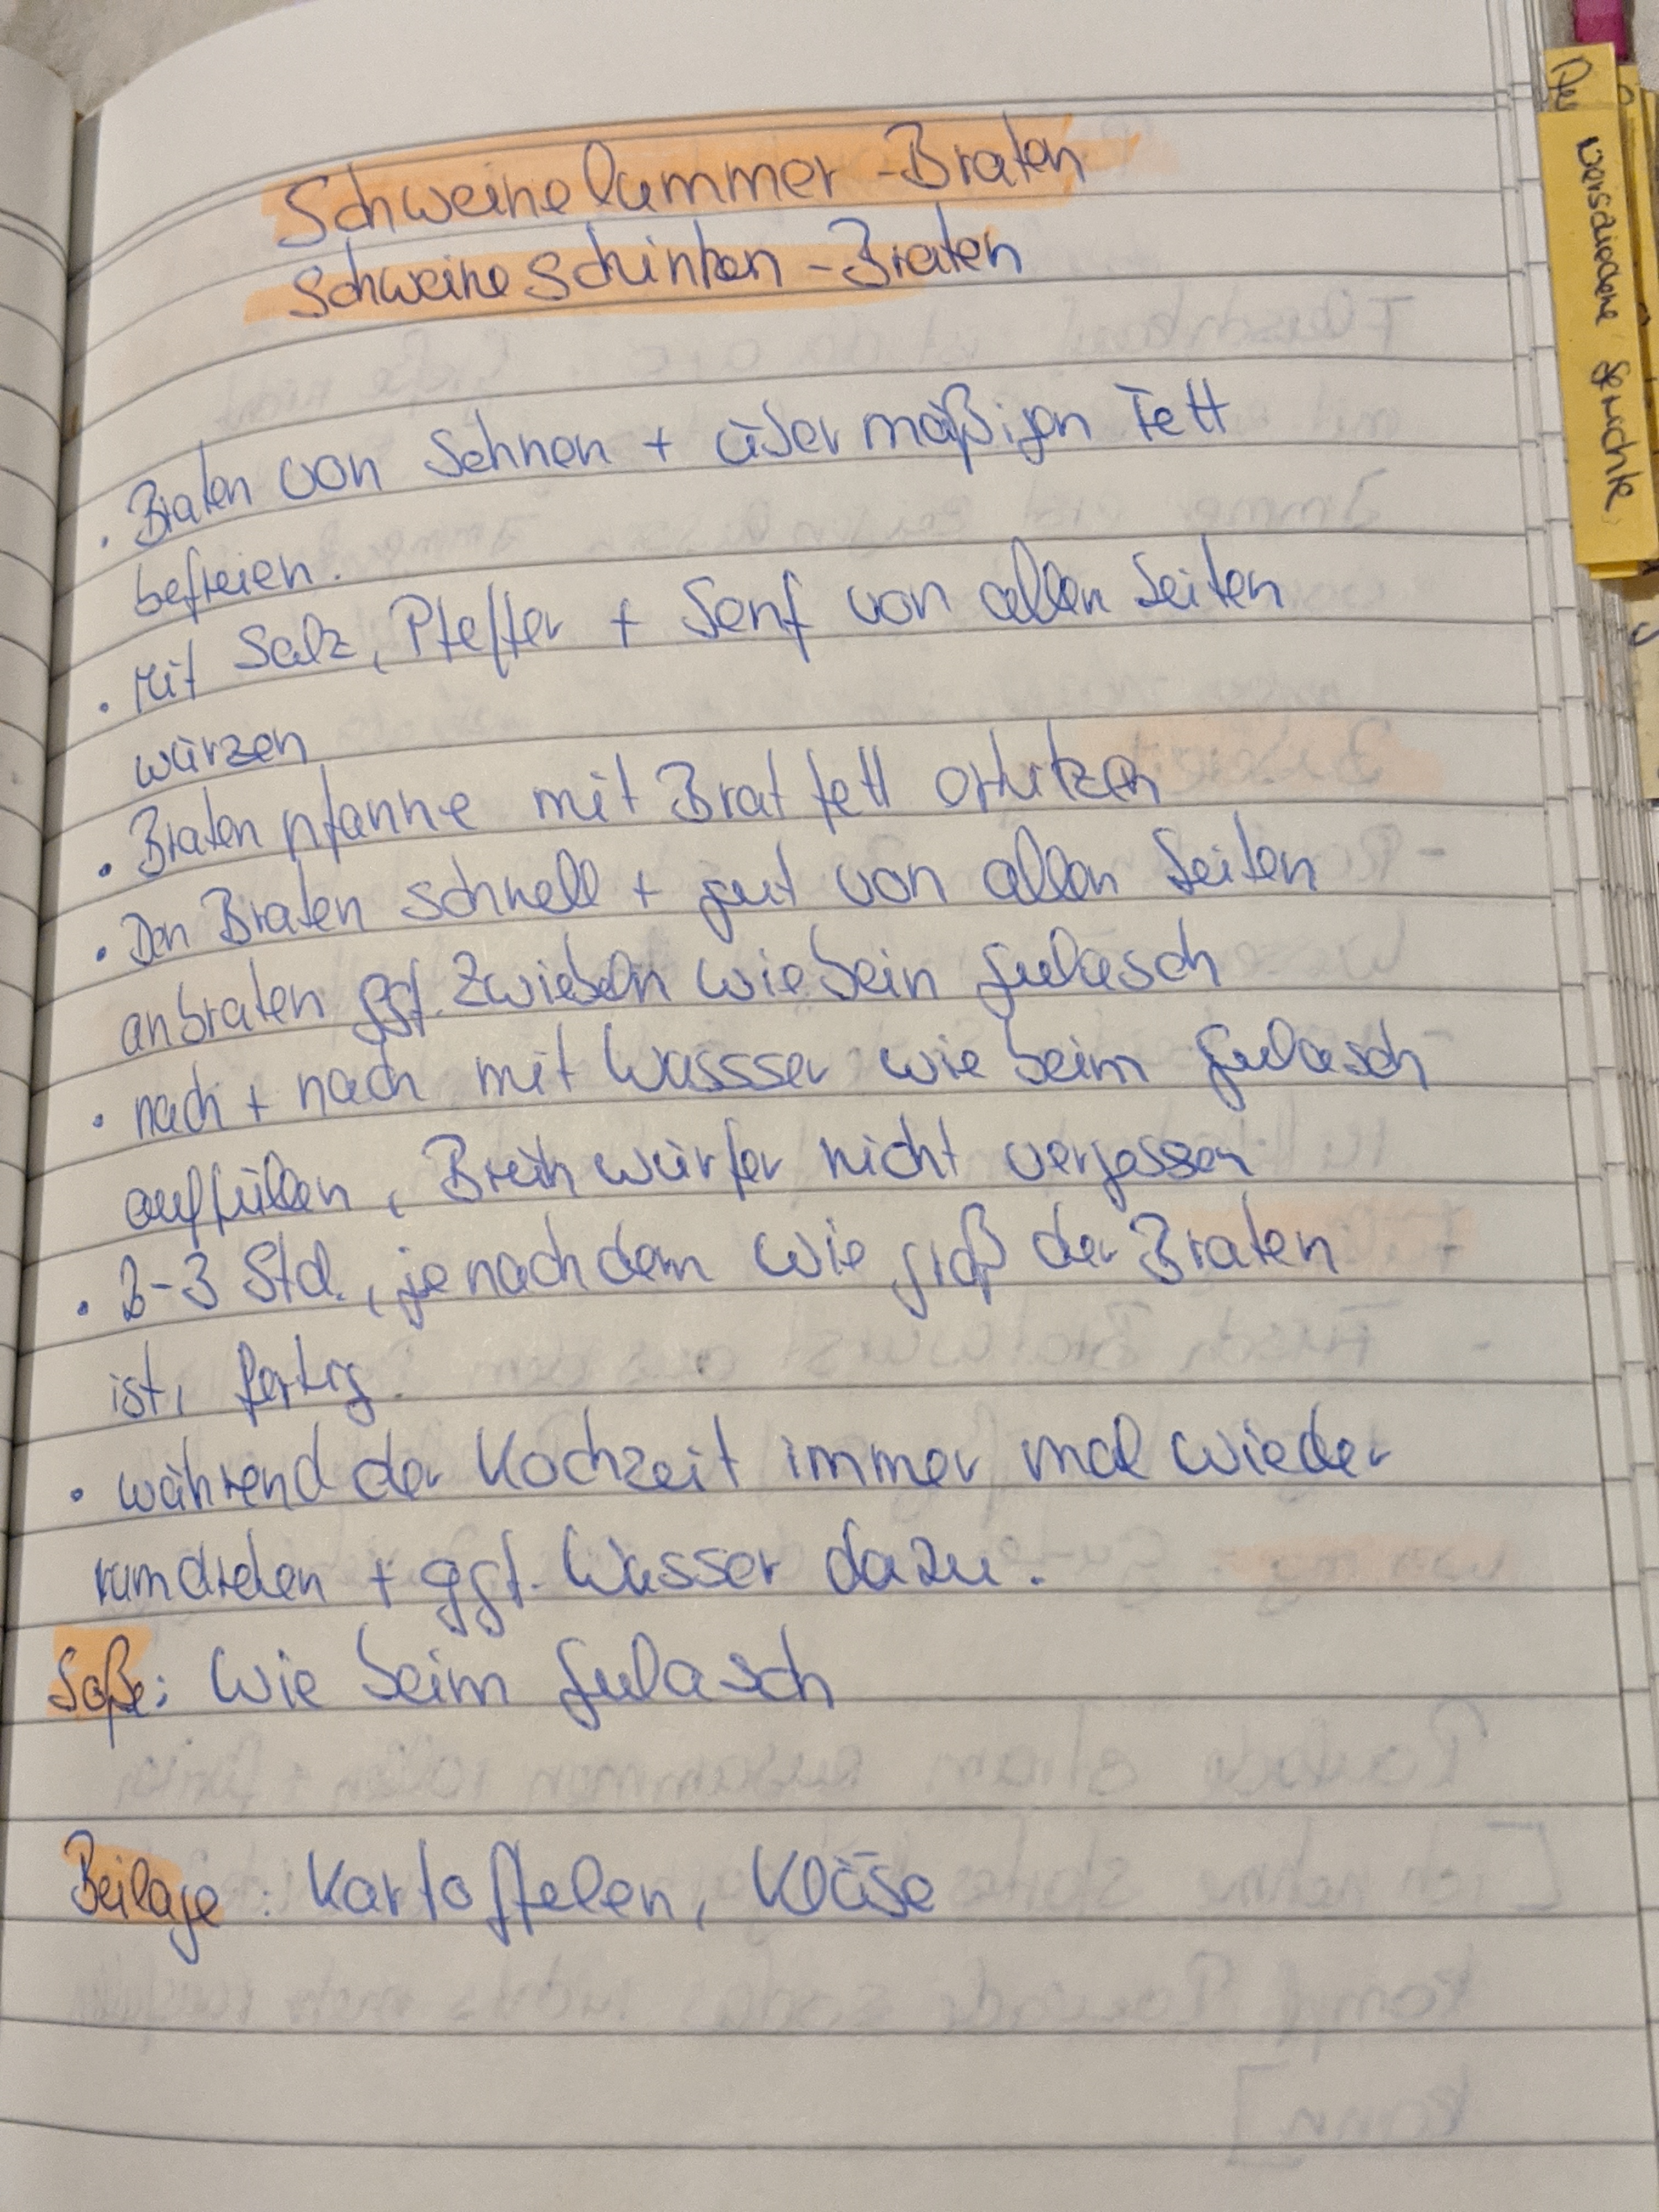 Schweinelummer-Braten
Schweineschinken-Braten
. Braten von Sehnen + übermäßigen Fett
befreien.
. Mit Salz, Pfeffer + Senf von allen Seiten
würzen
. Bratenpfanne mit Bratfett erhitzen
. Den Braten schnell + gut von allen Seiten
anbraten ggf. Zwiebeln wie bein Gulasch
. nach + nach mit Wassser wie beim Gulasch
auffüllen, Brühwürfer nicht vergessen
. 2-3 Std., je nach dem wie groß der Braten
ist, fertig.
. während der Kochzeit immer mal wieder
rumdrehen + ggf. Wasser dazu.
Soße: wie beim Gulasch
Beilage: Kartoffelen, Klöse
verschiedene Gerichte